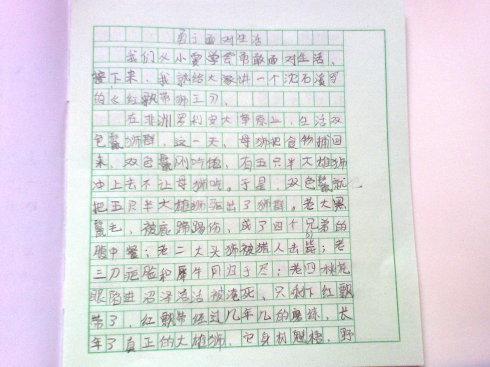 勇于面对生活
我们从小要学会勇敢面对生活,
接下来,我就给大家讲一个沈石溪写
的《红飘带狮王》。
在非洲罗利安大草原上,生活双
色鬣狮群,这一天,母狮把食物捕回
来,双色鬣刚吃饱,有五只半大雄狮
冲上去不让母狮吃。于是,双色鬣就
把五只半大雄狮赶出了狮群。老大黑
鬣毛,被鹿蹄踢伤,成了四个兄弟的
腹中餐;老二大头狮被猎人击毙;老
三刀疤脸和犀牛同归于尽;老四桃花
眼陷进沼泽活活被淹死,只剩下红飘
带了,红飘带经过几年几的磨练,长
年了真正的大雄狮,它身材魁梧,野